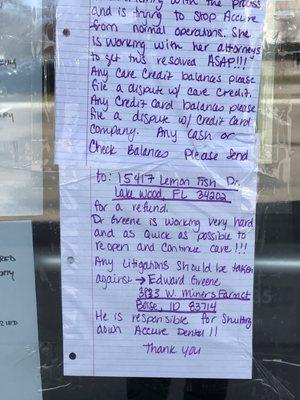 with the process
and is trying to stop Accure
from normal operations. She
is working with her attorneys
to get this resolved ASAP!!!
Any Care Credit balances please
file a dispute w/ care credit.
Any Credit Card balances please
file a dispute w/ Credit Card
company. Any cash or
Check Balances Please Send
to: 15417 Lemon Fish Dr.
Lake Wood, FL 34202
for a refund.
Dr Greene is working very hard
and as Quick as possible to
reopen and Continue care!!!
Any Litigations Should be taken
against → Edward Greene
W. Miners Farm Ct
Boise, ID 83714
He is responsible for Shutting
down Accure Dental!!
Thank you